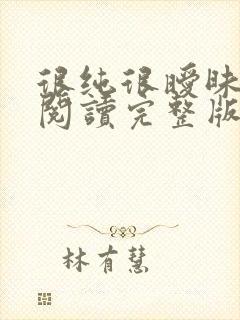 很纯很暧昧
閱讀完整版
林有慧